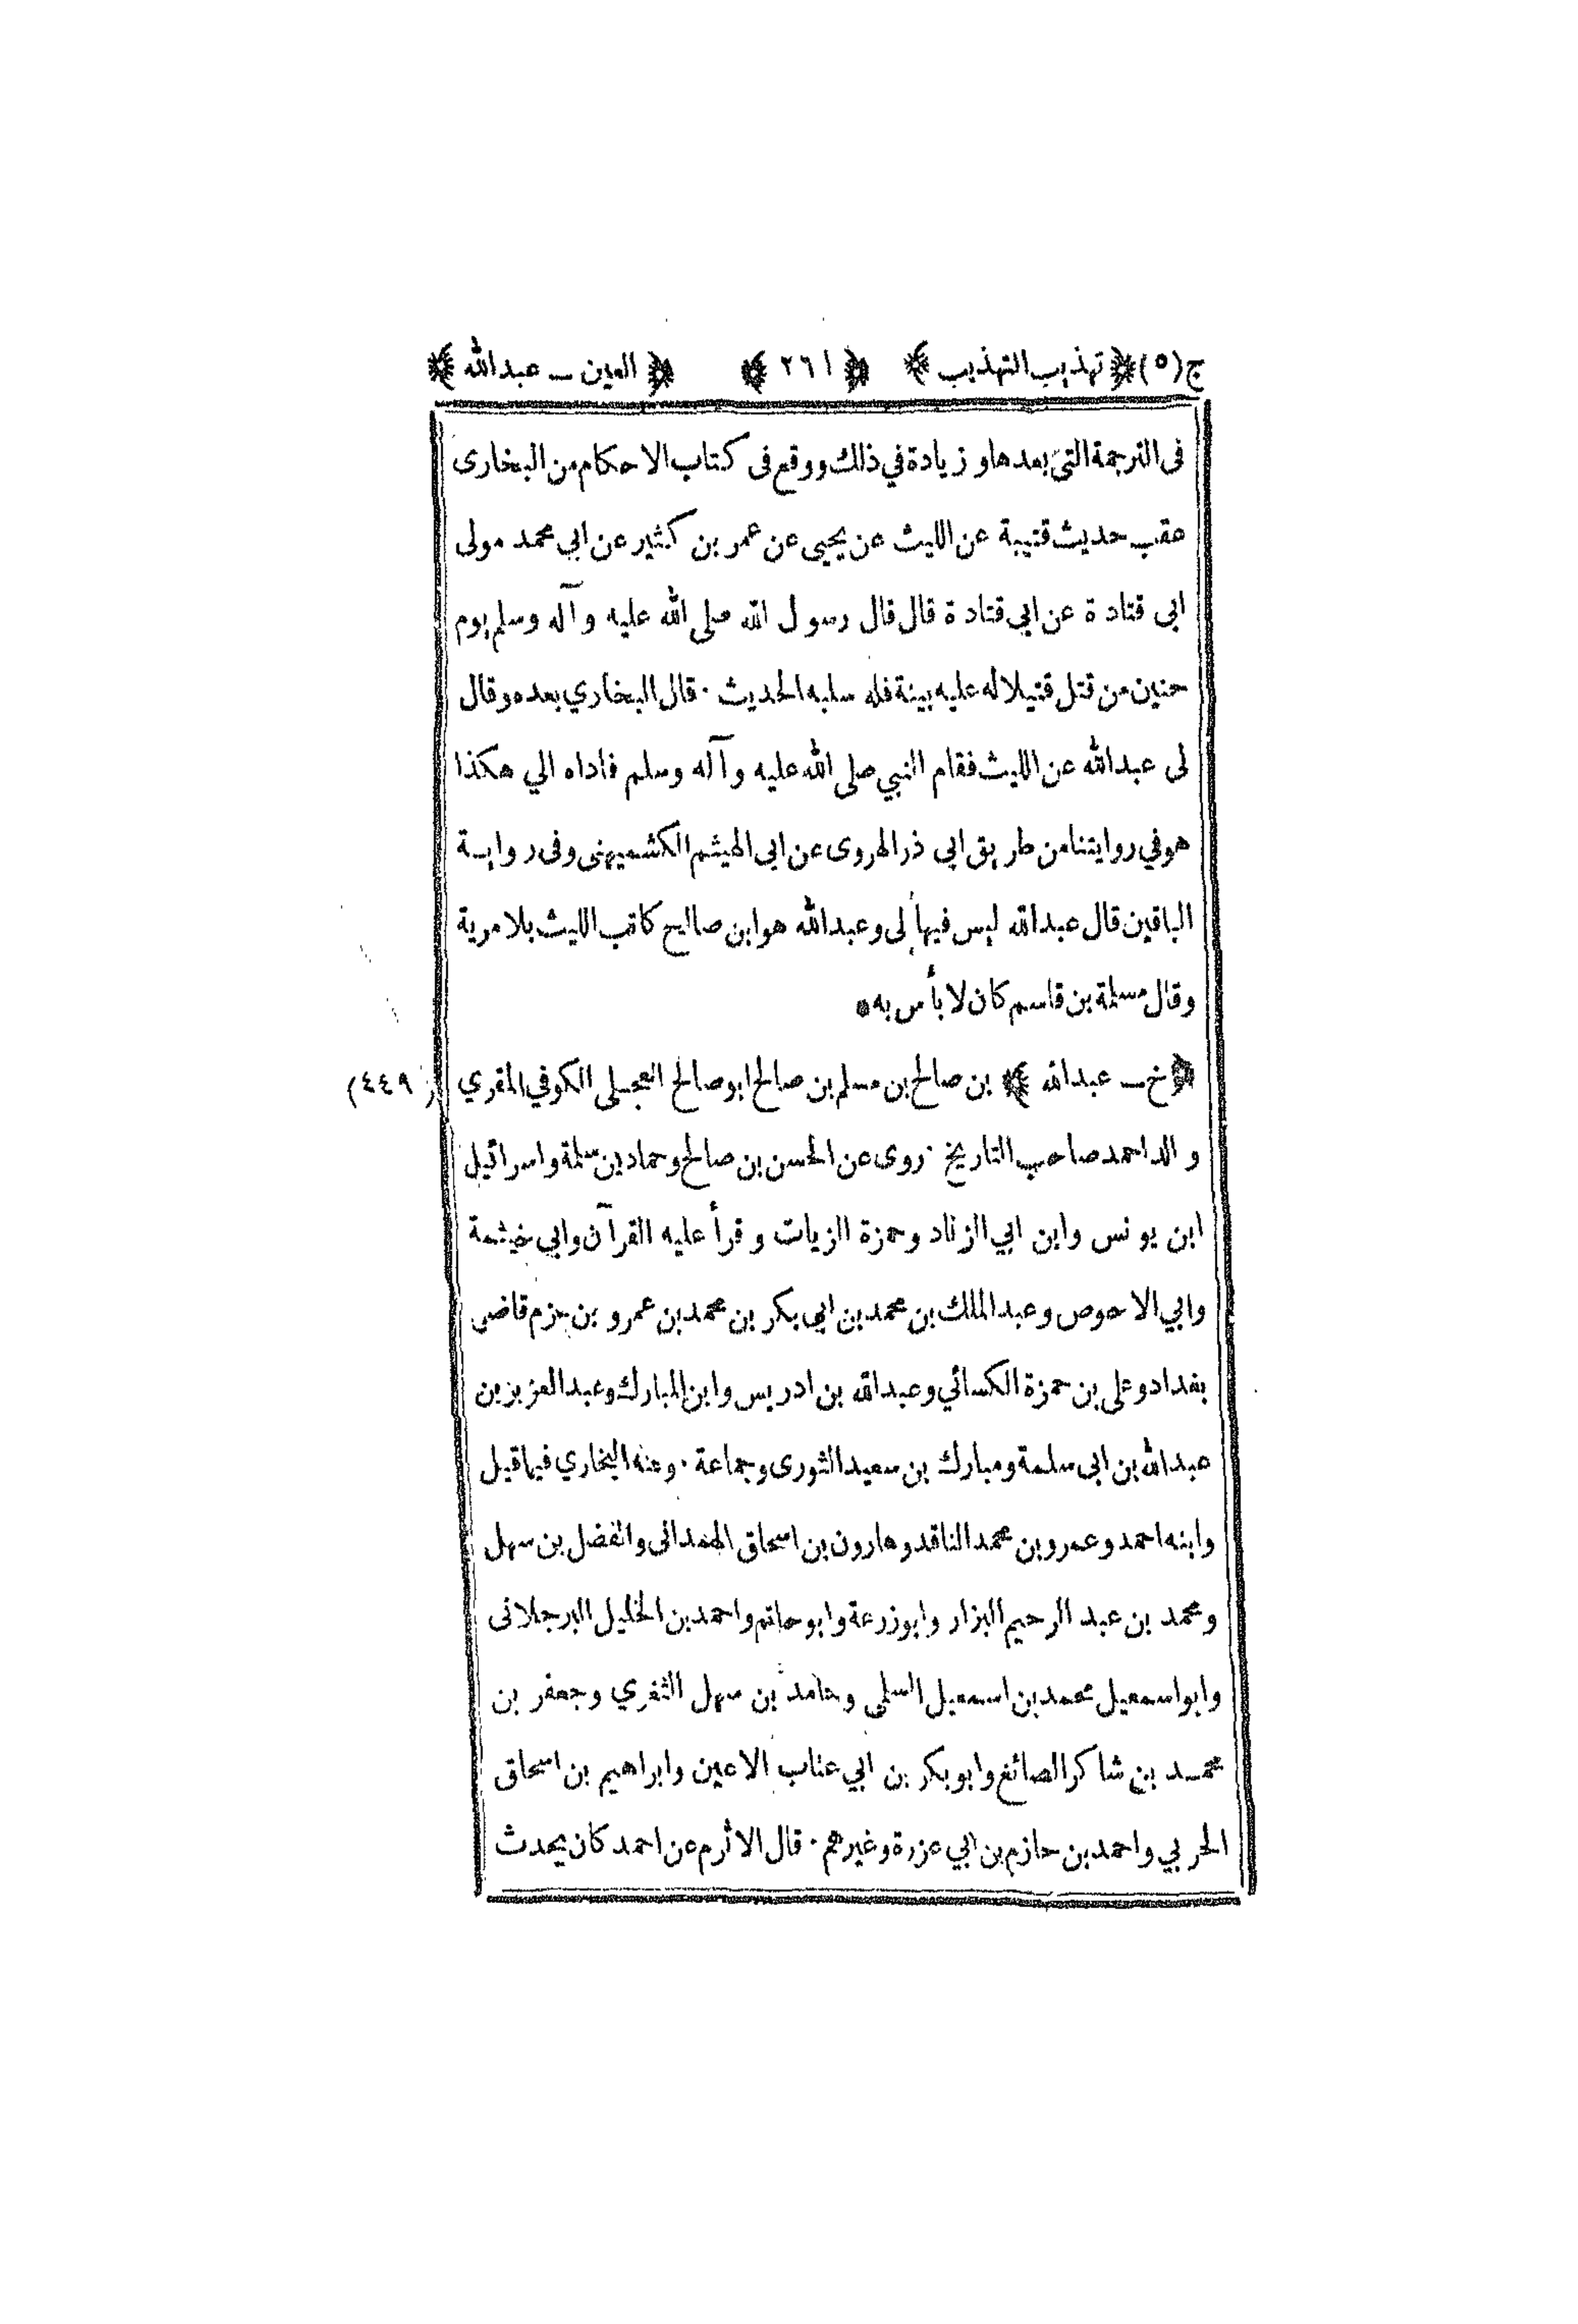 ج(٥) ﴿تهذيب التهذيب﴾ ﴿٢٦١﴾ ﴿العين ـ عبدالله﴾
فى الترجمة التى بعدها و زيادة في ذلك ووقع فى كتاب الاحكام من البخارى
عقب حديث قتيبة عن الليث عن يحيى عن عمر بن كثير عن ابي محمد مولى
ابى قتادة عن ابي قتادة قال قال رسول الله صلى الله عليه وآله وسلم يوم
حنين من قتل قتيلا له عليه بينة فله سلبه الحديث · قال البخاري بعده وقال
لى عبدالله عن الليث فقام النبي صلى الله عليه وآله وسلم فاداه الي هكذا
هو في روايتنا من طريق ابي ذر الهروى عن ابى الهيثم الكشميهنى وفى رواية
الباقين قال عبدالله ليس فيها لى وعبدالله هو ابن صالح كاتب الليث بلا مرية
وقال مسلمة بن قاسم كان لا بأس به●
﴿خ ـ عبدالله﴾ بن صالح بن مسلم بن صالح ابو صالح العجلى الكوفي المقري (٤٤٩)
والد احمد صاحب التاريخ · روى عن الحسن بن صالح وحماد بن سلمة واسرائيل
ابن يونس وابن ابي الزناد وحمزة الزيات و قرأ عليه القرآن وابي خيثمة
وابي الاحوص وعبدالملك بن محمد بن ابي بكر بن محمد بن عمرو بن حزم قاضى
بغداد وعلى بن حمزة الكسائي وعبدالله بن ادريس وابن المبارك وعبدالعزيز بن
عبدالله بن ابى سلمة ومبارك بن سعيد الثورى وجماعة · وعنه البخاري فيما قيل
وابنه احمد وعمرو بن محمد الناقد وهارون بن اسحاق الهمدانى والفضل بن سهل
ومحمد بن عبد الرحيم البزار وابوزرعة وابو حاتم واحمد بن الخليل البرجلانى
وابو اسمعيل محمد بن اسمعيل السلمى وحامد بن سهل الثغري وجعفر بن
محمد بن شاكر الصائغ وابو بكر بن ابي عتاب الاعين وابراهيم بن اسحاق
الحربي واحمد بن حازم بن ابي عزرة وغيرهم · قال الاثرم عن احمد كان يحدث